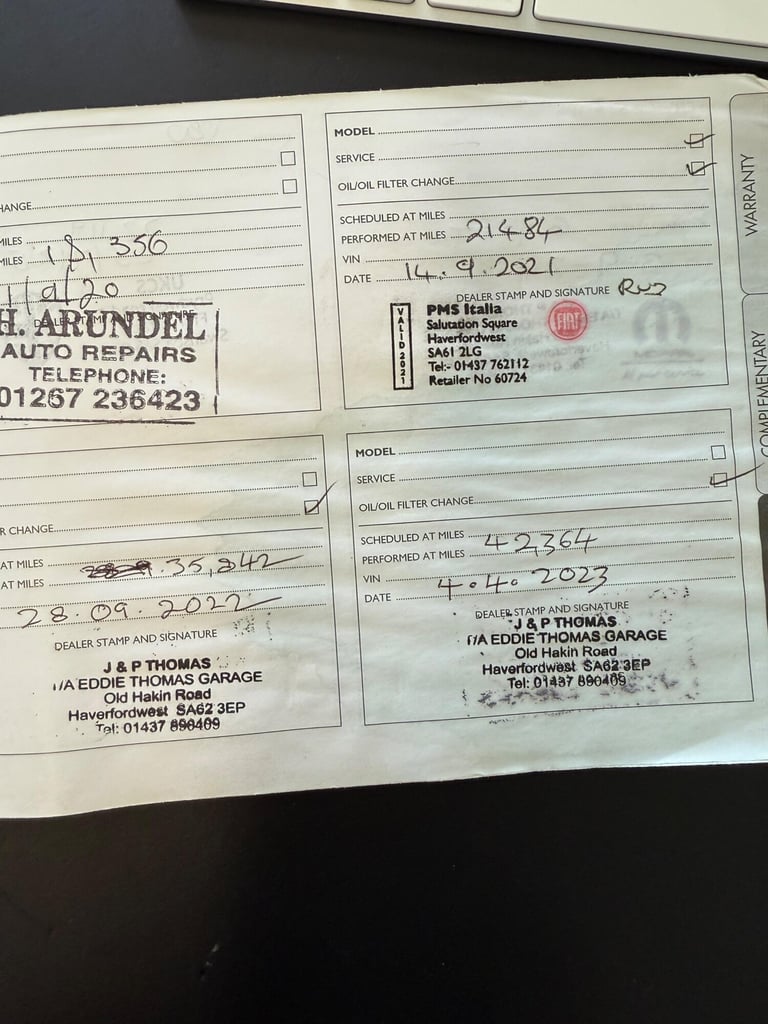 HANGE
MILES
MILES 18,356
1/9/20
H. ARUNDEL
AUTO REPAIRS
TELEPHONE:
01267 236423
MODEL
SERVICE
OIL/OIL FILTER CHANGE
SCHEDULED AT MILES
PERFORMED AT MILES 21484
VIN
DATE 14.9.2021
DEALER STAMP AND SIGNATURE
VALID 2021
PMS Italia
Salutation Square
Haverfordwest
SA61 2LG
Tel:- 01437 762112
Retailer No 60724
FIAT
R CHANGE
AT MILES
AT MILES 35,842
28.09.2022
DEALER STAMP AND SIGNATURE
J & P THOMAS
T/A EDDIE THOMAS GARAGE
Old Hakin Road
Haverfordwest SA62 3EP
Tel: 01437 890409
MODEL
SERVICE
OIL/OIL FILTER CHANGE
SCHEDULED AT MILES
PERFORMED AT MILES 42,364
VIN
DATE 4.4.2023
DEALER STAMP AND SIGNATURE
J & P THOMAS
T/A EDDIE THOMAS GARAGE
Old Hakin Road
Haverfordwest SA62 3EP
Tel: 01437 890409
WARRANTY
COMPLEMENTARY